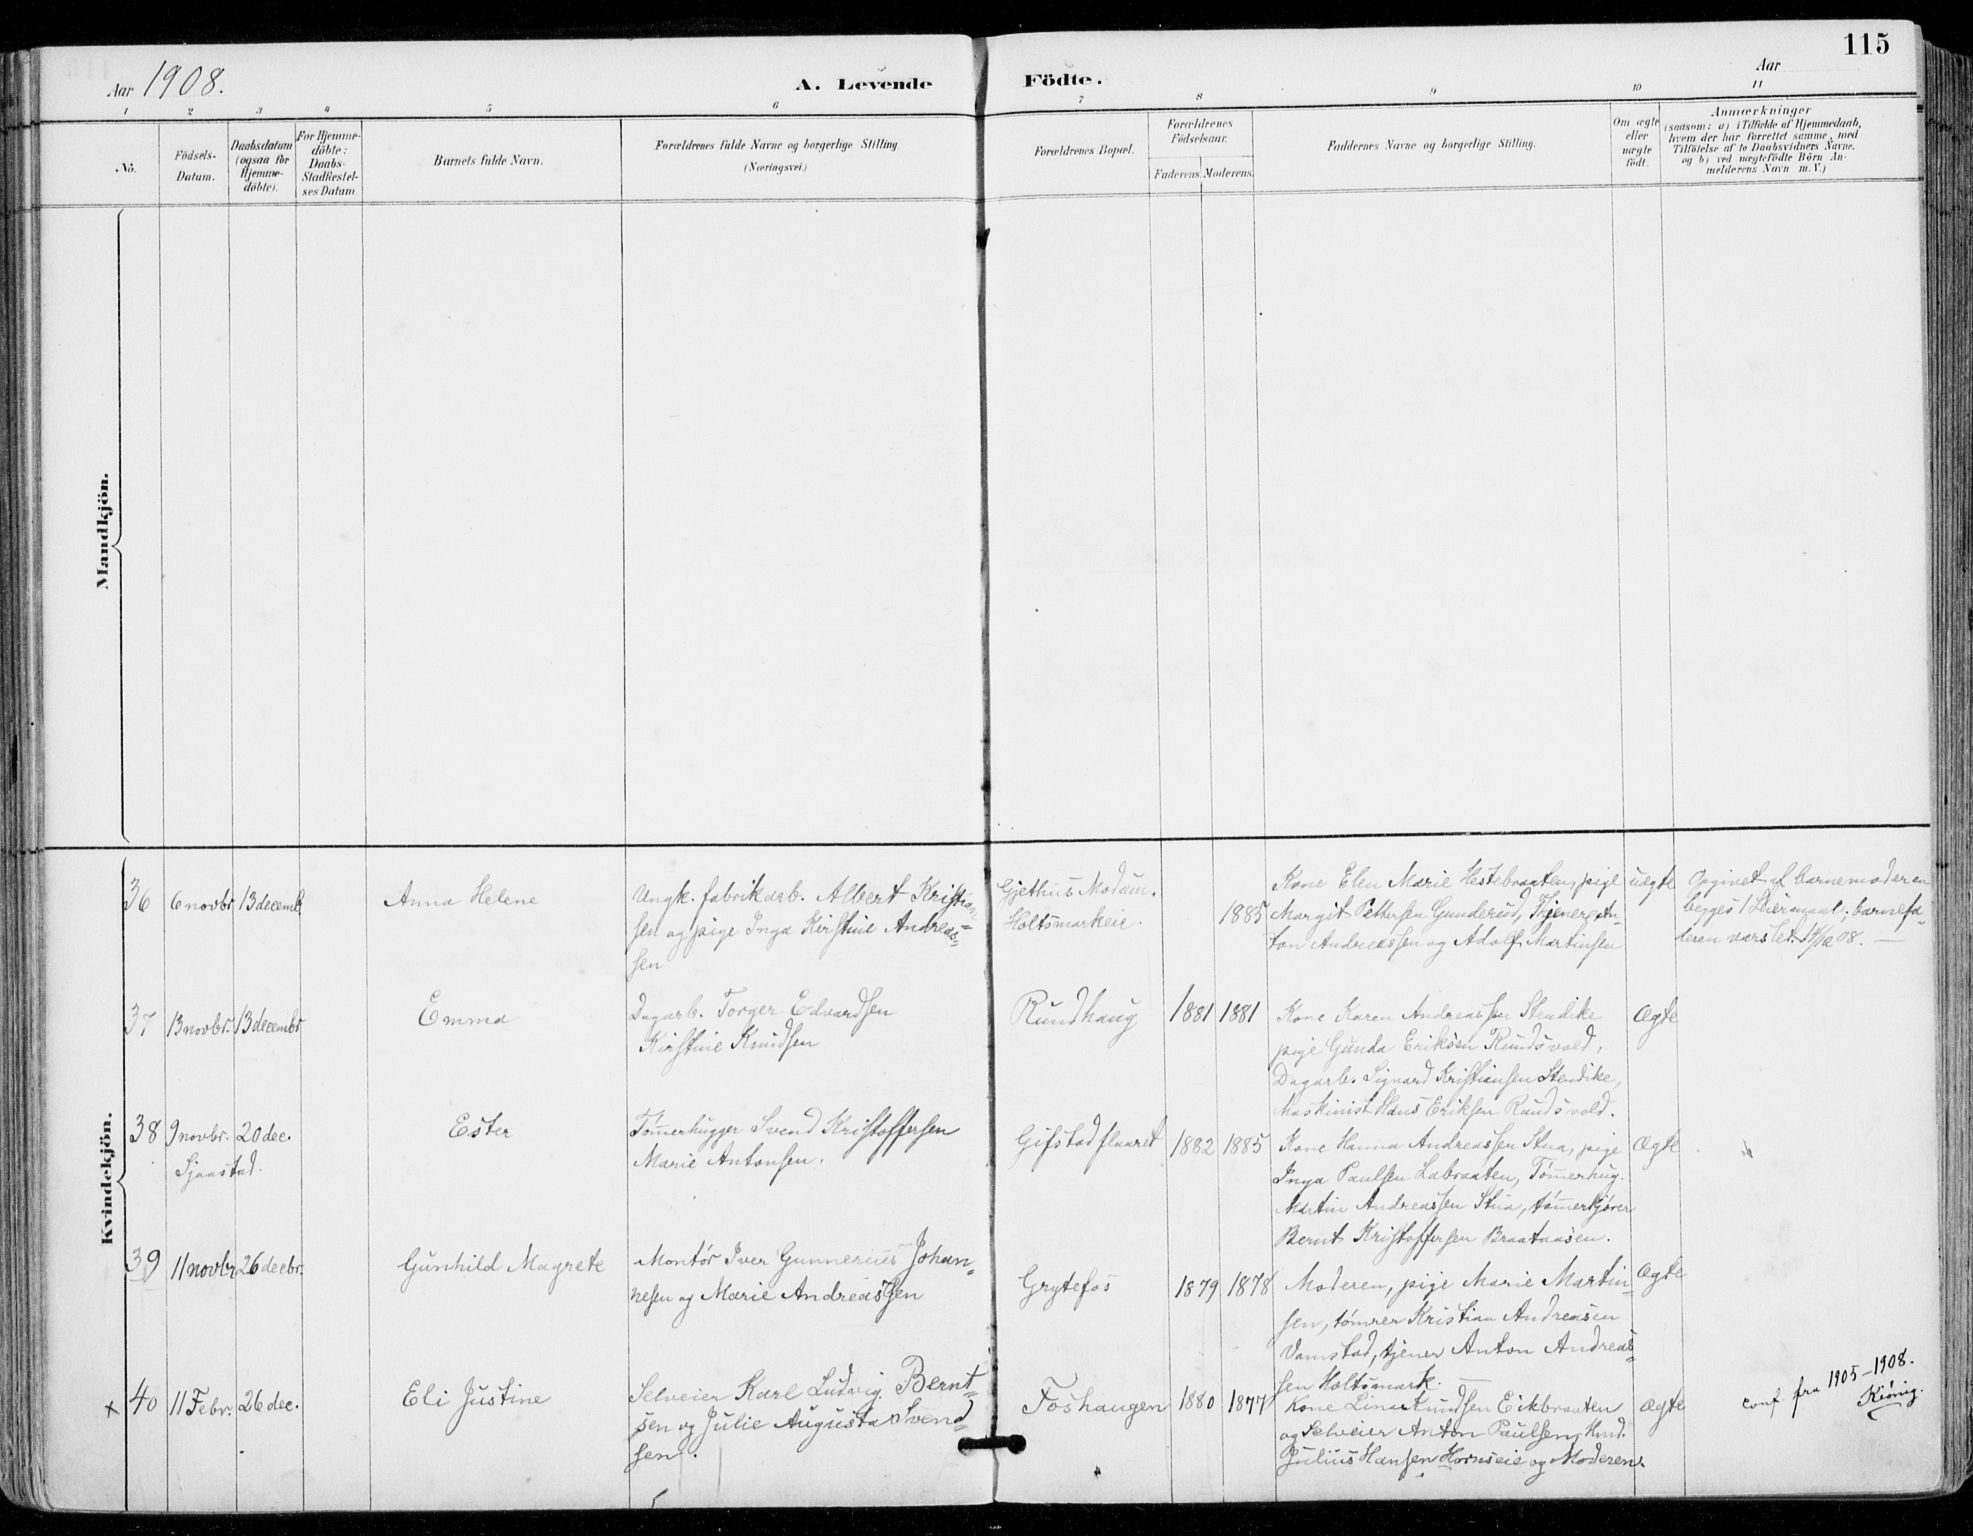 115
Aar 1908.
A. Levende Födte.
Aar
1 2 3 4 5 6 7 8 9 10 11
No.
Födsels-
Datum.
Daabsdatum
(ogsaa for
Hjemme-
döbte).
For Hjemme-
döbte:
Daabs-
Stadfæstel-
ses Datum.
Barnets fulde Navn.
Forældrenes fulde Navne og borgerlige Stilling
(Næringsvei.)
Forældrenes Bopæl.
Forældrenes
Födselsaar.
Faderens. Moderens.
Faddernes Navne og borgerlige Stilling.
Om ægte
eller
uægte
født.
Anmærkninger
(saasom: a) i Tilfælde af Hjemmedaab,
hvem der har forrettet samme, med
Tilføielse af to Daabsvidners Navne.
og b) ved uægtefödte Börn An-
melderens Navn m. V.)
Mandkjön.
Kvindekjön.
36 6 novbr 13 decemb.
Anna Helene
Ungk. fabrikarb. Albert Kristian-
sen og pige Inga Kirstine Andreas-
sen
Gjethus Modum.
Holtsmarkeie.
1885
Kone Elen Marie Hestebraaten, pige
Margit Pettersen Gunderud, Tjener An-
ton Andreassen og Adolf Martinsen
uægte
Opgivet af barnemoderen
begges 1 Leiermaal; barnefa-
deren varslet 14/12 08.
37 13 novbr. 13 decembr
Emma
Dagarb. Torger Edvardsen
Kirstine Knudsen
Rundhaug
1881 1881
Kone Karen Andreassen Stendike
pige Gunda Eriksen Rundsvold,
Dagarb. Signard Kristiansen Stendike,
Maskinist Hans Eriksen Rundsvold.
Ægte
38 9 novbr. 20 dec.
Sjaastad.
Ester
Tømerhugger Svend Kristoffersen
Marie Antonsen.
Gifstadflaaret
1882 1885
Kone Hanna Andreassen Stua, pige
Inga Paulsen Labraaten, Tømerhug.
Martin Andreassen Stua, tømerkjører
Bernt Kristoffersen Braataasen.
Ægte
39 11 novbr 26 decbr.
Gunhild Magrete
Montør Iver Gunnerius Johan-
nesen og Marie Andreassen
Grytefos
1879 1878
Moderen, pige Marie Martin-
sen, tømrer Kristian Andreasen
Vamstad, tjener Anton Andreas-
sen Holtsmark.
Ægte
x 40 11 Febr. 26 dec.
Eli Justine
Selveier Karl Ludvig Bernt-
sen og Julie Augusta Svend
sen.
Foshaugen
1880 1877
Kone Lina Knudsen Eikbraaten
og Selveier Anton Paulsen, Hmd.
Julius Hansen Hornseie og Moderen.
Ægte
conf. fra 1905-1908.
Kiønig.